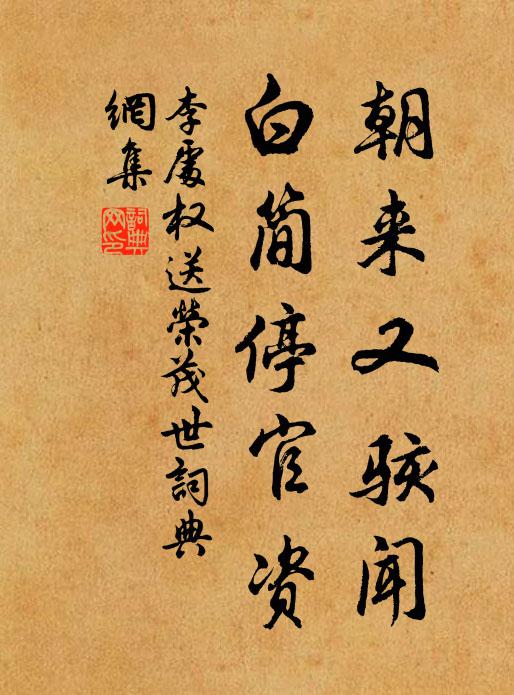 朝来又骇闻
白简停官资
李處权送榮茂世詞典
網集
詞典
网印